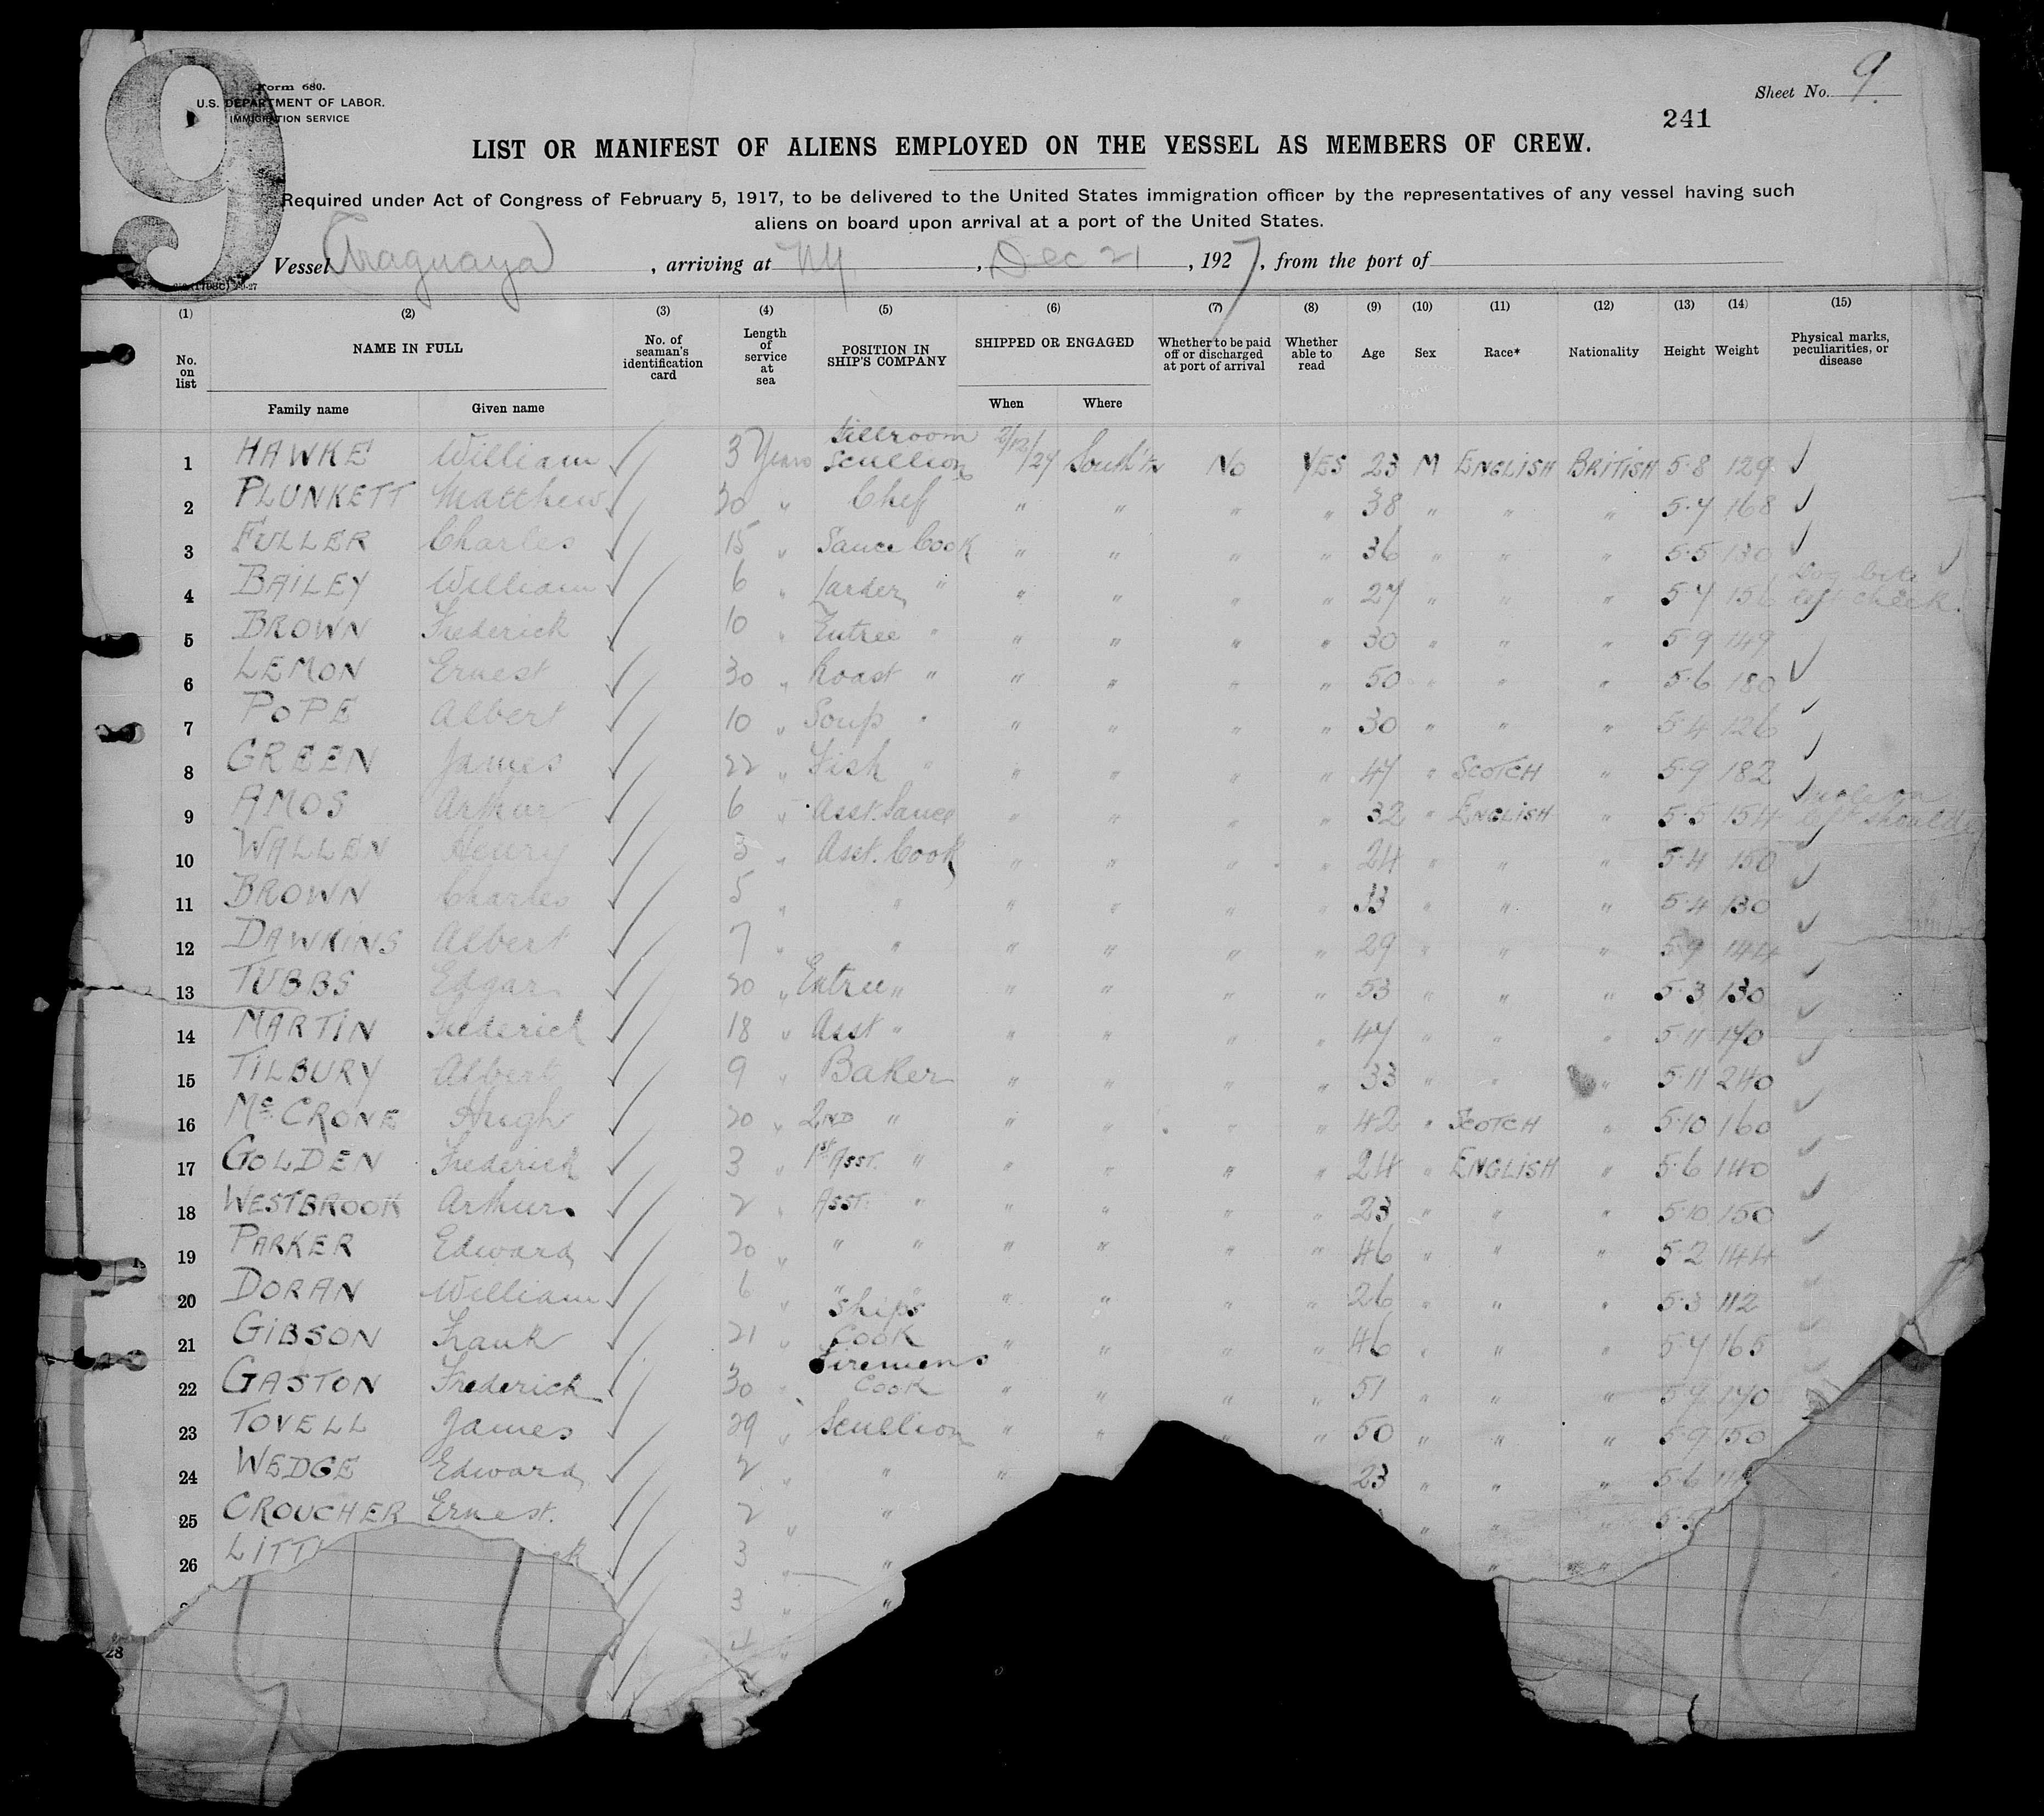 9
Form 680.
U.S. DEPARTMENT OF LABOR.
IMMIGRATION SERVICE
Sheet No. 9.
241
LIST OR MANIFEST OF ALIENS EMPLOYED ON THE VESSEL AS MEMBERS OF CREW.
Required under Act of Congress of February 5, 1917, to be delivered to the United States immigration officer by the representatives of any vessel having such
aliens on board upon arrival at a port of the United States.
Vessel Araguaya, arriving at NY, Dec 21, 1927, from the port of
(1) (2) (3) (4) (5) (6) (7) (8) (9) (10) (11) (12) (13) (14) (15)
No. on list NAME IN FULL Family name Given name No. of seaman's identification card Length of service at sea POSITION IN SHIP'S COMPANY SHIPPED OR ENGAGED When Where Whether to be paid off or discharged at port of arrival Whether able to read Age Sex Race* Nationality Height Weight Physical marks, peculiarities, or disease
1 HAWKE William 3 Years Stillroom Scullion South'tn No YES 23 M ENGLISH BRITISH 5·8 129
2 PLUNKETT Matthew 30 " Chef " " " " 38 " " " 5·7 168
3 FULLER Charles 15 " Sauce Cook " " " " 36 " " " 5·5 130
4 BAILEY William 6 " Larder " " " " " 27 " " " 5·7 Dog bite left cheek.
5 BROWN Frederick 10 " Entree " " " " " 30 " " " 5 9 149
6 LEMON Ernest 30 " Roast " " " " " 50 " " " 5·6 180
7 POPE Albert 10 " Soup " " " " " 30 " " " 5·4 126
8 GREEN James 22 " Fish " " " " " 47 " SCOTCH " 5·9 182
9 AMOS Arthur 6 " Asst. Sauce " " " " 32 " ENGLISH " 5·5 154 left shoulder
10 WALLEN Henry 3 " Asst. Cook " " " " 24 " " " 5·4 150
11 BROWN Charles 5 " " " " " " 33 " " " 5·4 130
12 DAWKINS Albert 7 " " " " " " 29 " " " 5·9 144
13 TUBBS Edgar 30 " Entree " " " " " 53 " " " 5·3 130
14 MARTIN Frederick 18 " Asst " " " " " 47 " " " 5·11 170
15 TILBURY Albert 9 " Baker " " " " 33 " " " 5·11 240
16 McCRONE Hugh 20 " 2ND " " " " " 42 " SCOTCH " 5·10 160
17 GOLDEN Frederick 3 " 1st ASST. " " " " " 24 " ENGLISH " 5·6 140
18 WESTBROOK Arthur 2 " ASST. " " " " " 23 " " " 5·10 150
19 PARKER Edward 20 " " " " " " " 46 " " " 5·2 144
20 DORAN William 6 " " " " " " " 26 " " " 5·3 112
21 GIBSON Frank 21 " Ships Cook " " " " 46 " " " 5·7 165
22 GASTON Frederick 30 " Firemens Cook " " " " 51 " " " 5·7 170
23 TOVELL James 29 " Scullion " " " " 50 " " " 5·9 150
24 WEDGE Edward 2 " " " 23 " " " 5·6
25 CROUCHER Ernest. 2 " " " " "
26 3 " " " "
3 " "
28 4 "